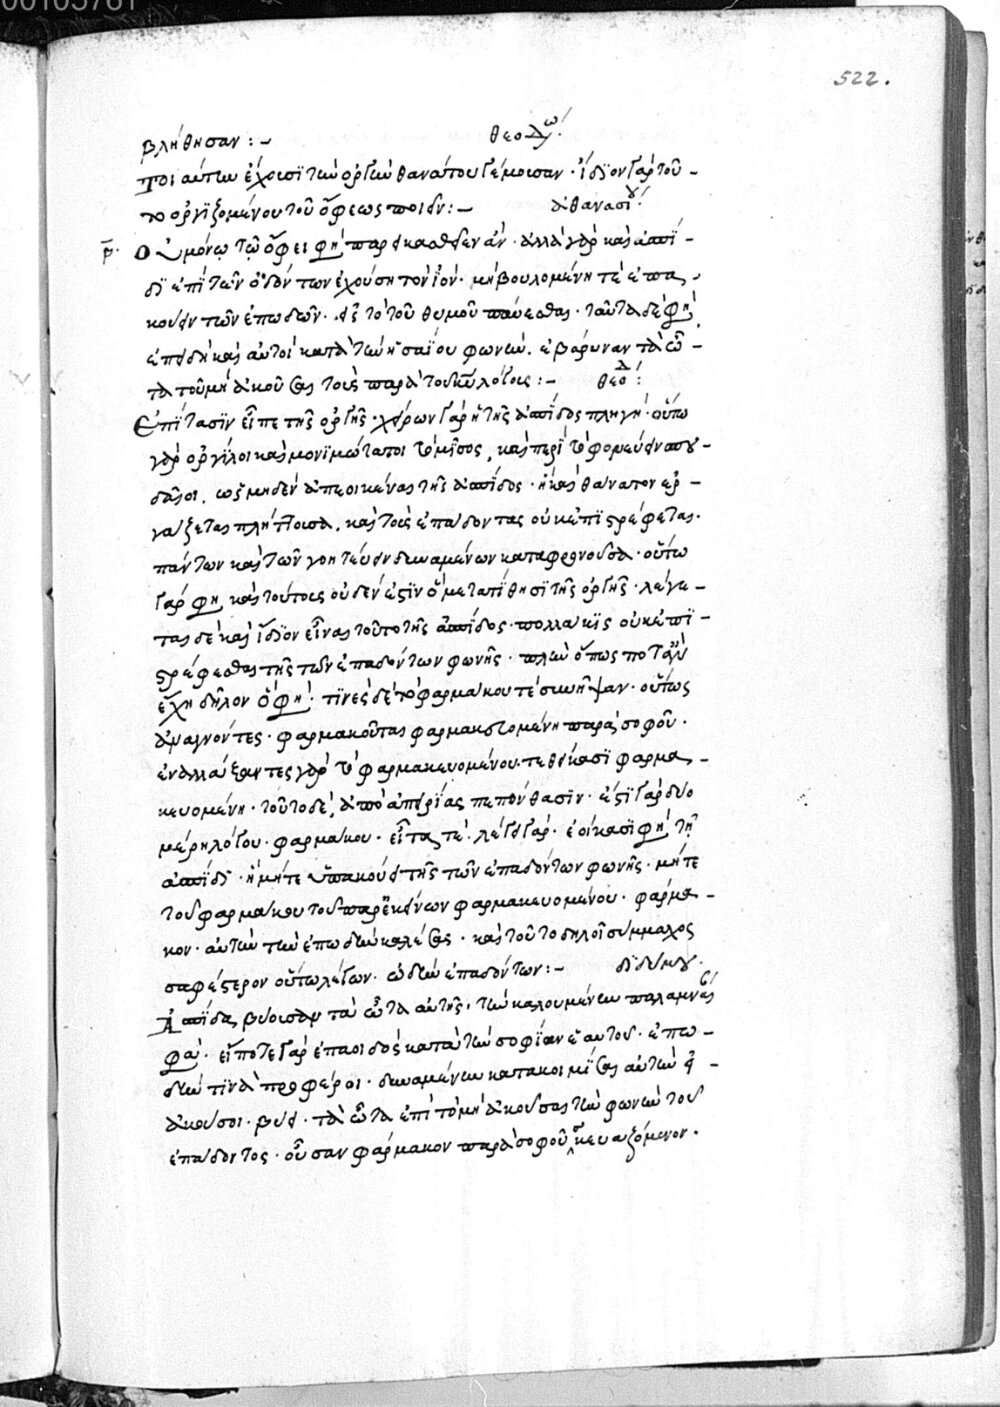 00105761
522.
βλήθησαν :- θεολω:
Τοιαύτην ἔχουσϊ τὴν ὀργὴν θανάτου γέμουσαν · ἴδϊον γὰρ τοῦ -
το ὀργϊζομένου τοῦ ὄφεως ποιεῖν :- ἀθανασίου:
Οὐ μόνῳ τῷ ὄφει φη παρεικασθεῖεν ἄν · ἀλλὰ γὰρ καὶ ἀσπί -
δϊ ἐπὶ τῶν ὀδόντων ἐχούση τὸν ἰόν · μὴ βουλομένη τὲ ἐπα -
κούειν τῶν ἐπωδῶν · εἰς τὸ τοῦ θυμοῦ παύεσθαι · ταῦτα δέ φη
ἐπειδὴ καὶ αὐτοὶ κατὰ τὴν ἡσαΐου φωνὴν. ἐβάρυναν τὰ ὦ -
τα τοῦ μὴ ἀκοῦσαι τοὺς παρὰ τοῦ κυ λόγους :- θεοδ:
Ἐπίτασϊν εἶπε τῆς ὀργῆς · χείρων γὰρ ἡ τῆς ἀσπίδος πληγή · οὕτω
γὰρ ὀργίλοι καὶ μονϊμώτατοι τὸ μῖσος, καὶ περὶ τὸ φονεύειν σπου -
δαῖοι, ὡς μηδὲν ἀπεοικέναι τῆς ἀσπίδος · ἣ καὶ θάνατον ἐρ -
γάζεται πλήττουσα, καὶ τοὺς ἐπάδοντας οὐκ ἐπϊστρέφεται ·
πάντων καὶ τῶν γοητεύειν δυναμένων καταφρονοῦσα · οὕτω
γάρ φη καὶ τούτοις οὐδέν ἐστϊν ὃ μεταπείθησϊ τῆς ὀργῆς · λέγε -
ται δὲ καὶ ἴδϊον εἶναι τοῦτο τῆς ἀσπίδος · πολλάκϊς οὐκ ἐπϊ -
στρέφεσθαι τῆς τῶν ἐπαδόντων φωνῆς · πλὴν ὅπως ποτ' ἂν
ἔχη δῆλον ὅ φη · τϊνὲς δὲ τὸ φαρμάκου τὲ σιωπῆψαν · οὕτως
ἀναγνόντες · φαρμακοῦται φαρμακευομένη παρὰ σοφοῦ ·
ἐναλλάξαντες γὰρ τὸ φαρμακευομένου · τεθείκασϊ φαρμα -
κευομένη · τοῦτο δὲ, ἀπὸ ἀπειρίας πεπόνθασϊν · ἐστϊ γὰρ δύο
μέρη λόγου · φαρμάκου · εἶτα τέ · λέγει γάρ · ἐοίκασϊ φη τῆ
ἀσπίδϊ · ἣ μήτε ὑπακούει τῆς τῶν ἐπαδόντων φωνῆς · μήτε
τοῦ φαρμάκου τοῦ παρ' ἐκείνων φαρμακευομένου · φάρμα -
κον · αὐτὴν τὴν ἐπωδὴν καλέσας · καὶ τοῦτο δηλοῖ σύμμαχος
σαφέστερον οὕτω λέγων · ᾠδὴν ἐπαδόντων :- δϊδύμου ·
Ἀσπίδα βύουσαν τὰ ὦτα αὐτῆς · τὴν καλουμένην παλαμναί
φα · εἴποτε γὰρ ἐπαοιδὸς κατὰ τὴν σοφίαν ἑαυτοῦ · ἐπῳ -
δὴν τϊνὰ προφέροι · δυναμένην κατακοιμίσαι αὐτὴν εἰ -
ἀκούσοι · βύει · τὰ ὦτα ἐπὶ τὸ μὴ ἀκοῦσαι τὴν φωνὴν τοῦ
ἐπάδοντος · οὖσαν φάρμακον παρὰ σοφοῦ σκευαζόμενον ·